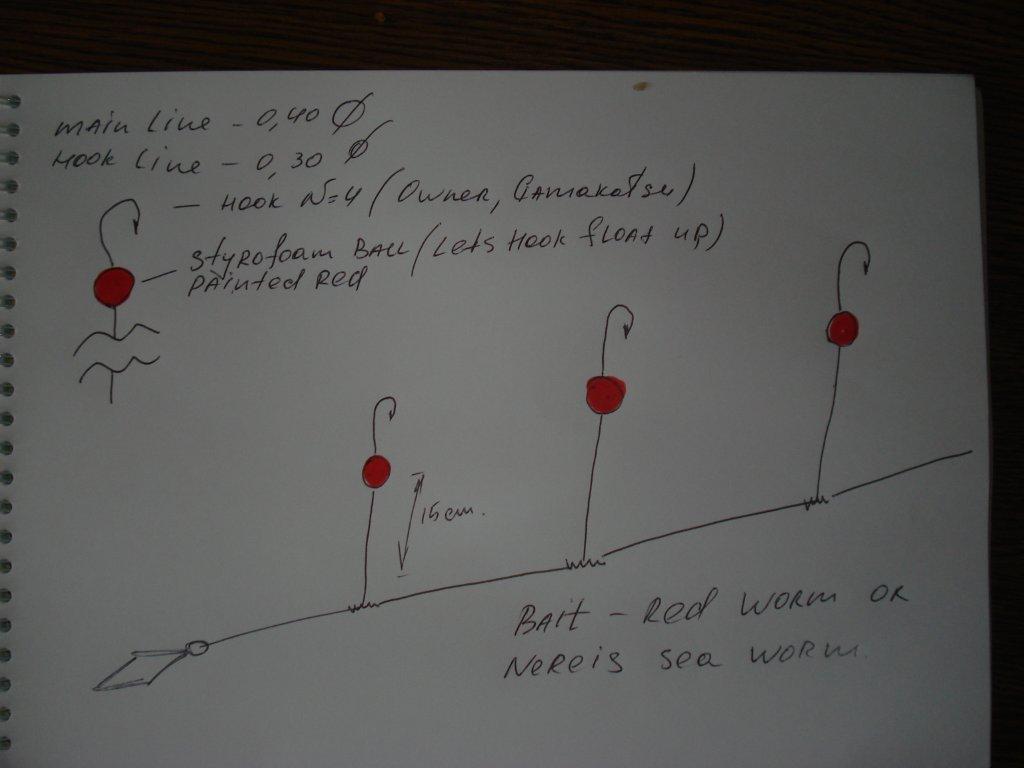 main line - 0,40 Ø
Hook Line - 0,30 Ø
- Hook №4 (Owner, Gamakatsu)
- Styrofoam Ball (Lets Hook float up)
painted Red
15cm.
Bait - Red worm or
Nereis sea worm.